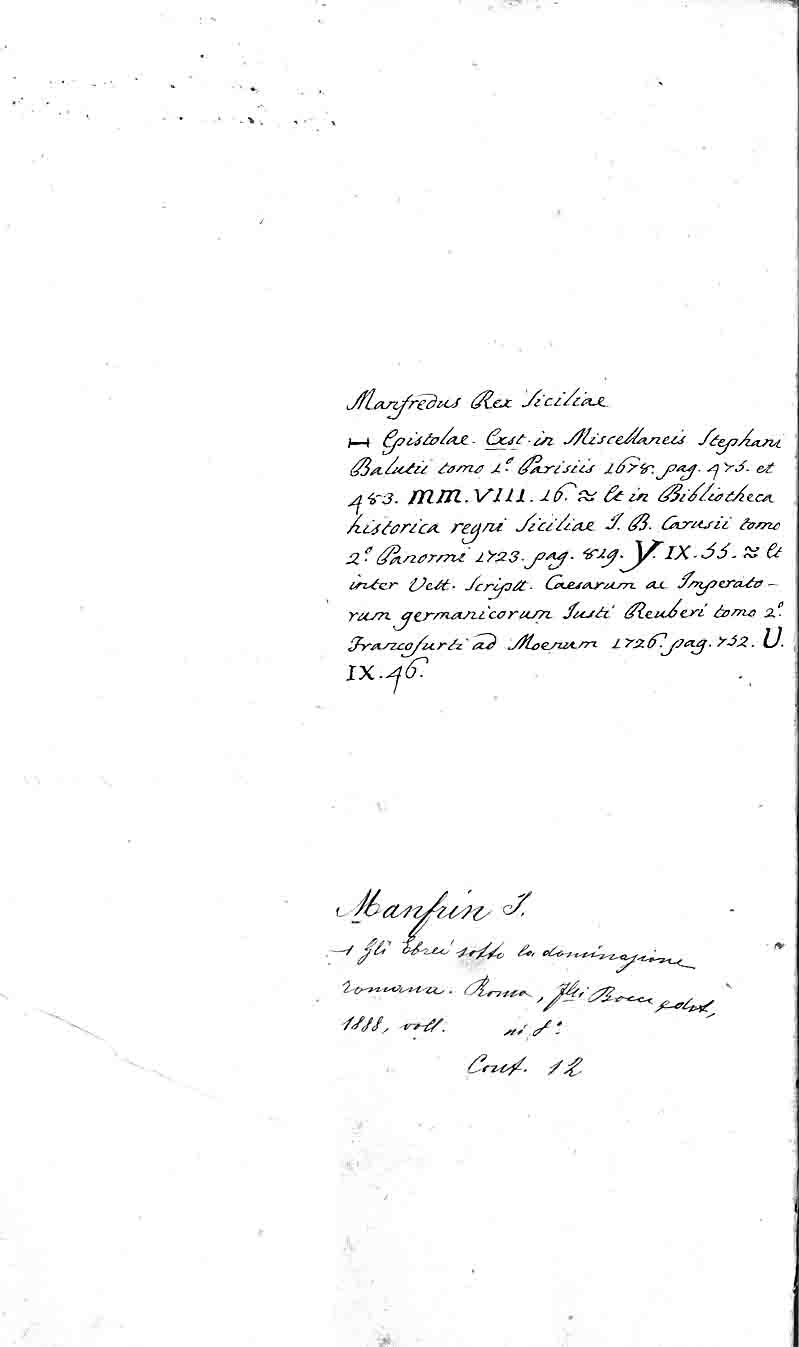 Manfredus Rex Siciliae
Epistolae. Exst. in Miscellaneis Stephani
Balutii tomo 1.º Parisiis 1678. pag. 475. et
483. MM.VIII.16. ≈ Et in Bibliotheca
historica regni Siciliae J. B. Carusii tomo
2.º Panormi 1723. pag. 819. V. IX. 55. ≈ Et
inter Vett. Scriptt. Caesarum ac Imperato-
rum germanicorum Justi Reuberi tomo 2.º
Francofurti ad Moenum 1726. pag. 752. U.
IX. 46.
Manfrin
Gli Ebrei sotto la dominazione
romana. Roma, flli Bocca
1888, voll. in 8.º
Cont. 12